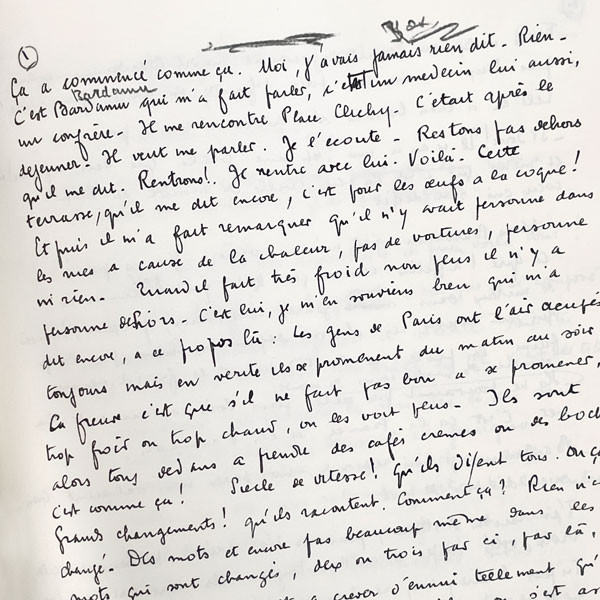 1
Ça a commencé comme ça. Moi, j'avais jamais rien dit. Rien.
Bardamu
C'est Bardamu qui m'a fait parler, c'était un médecin lui aussi,
un confrère. Il me rencontre Place Clichy. C'était après le
dejeuner. Il veut me parler. Je l'écoute. Restons pas dehors
qu'il me dit. Rentrons!. Je rentre avec lui. Voilà. Cette
terrasse, qu'il me dit encore, c'est pour les œufs a la coque!
Et puis il m'a fait remarquer qu'il n'y avait personne dans
les rues a cause de la chaleur, pas de voitures, personne
ni rien. Quand il fait très froid non plus il n'y a
personne dehors. C'est lui, je m'en souviens bien qui m'a
dit encore, a ce propos là : les gens de Paris ont l'air occupés
toujours mais en verité ils se promenent du matin au soir
La preuve c'est que s'il ne fait pas bon a se promener,
trop froid ou trop chaud, on les voit plus. Ils sont
alors tous dedans a prendre des cafés cremes ou des bock
c'est comme ça! Siecle de vitesse! qu'ils disent tous. Ou ça
Grands changements! qu'ils racontent. Comment ça? Rien n'e
changé. Des mots et encore pas beaucoup même dans les
mots qui sont changés, deux ou trois par ci, par là,
a crever d'ennui tellement qu'